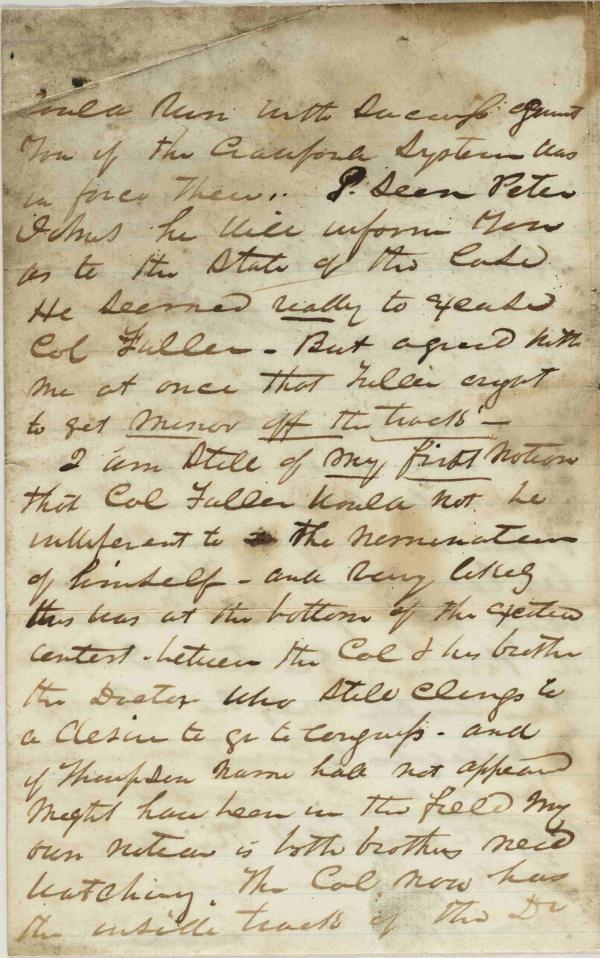 would Run with Success against
You if the Crawford System was
in force then. P. Seen Peter
he will inform You
as to the State of the Case
He Seemed really to Excuse
Col Fuller - But agreed with
me at once that Fuller ought
to get Minor off the track -
I am Still of my first Notion
that Col Fuller Would not be
indifferent to the Nomination
of himself - and very likely
this was at the bottom of the
contest - between the Col & his brother
the Doctor who Still Clings to
a desire to go to Congress - and
if Thompson Name had not appeared
Might have been in the field My
own notion is both brothers need
watching. The Col now has
the inside track of the Dr